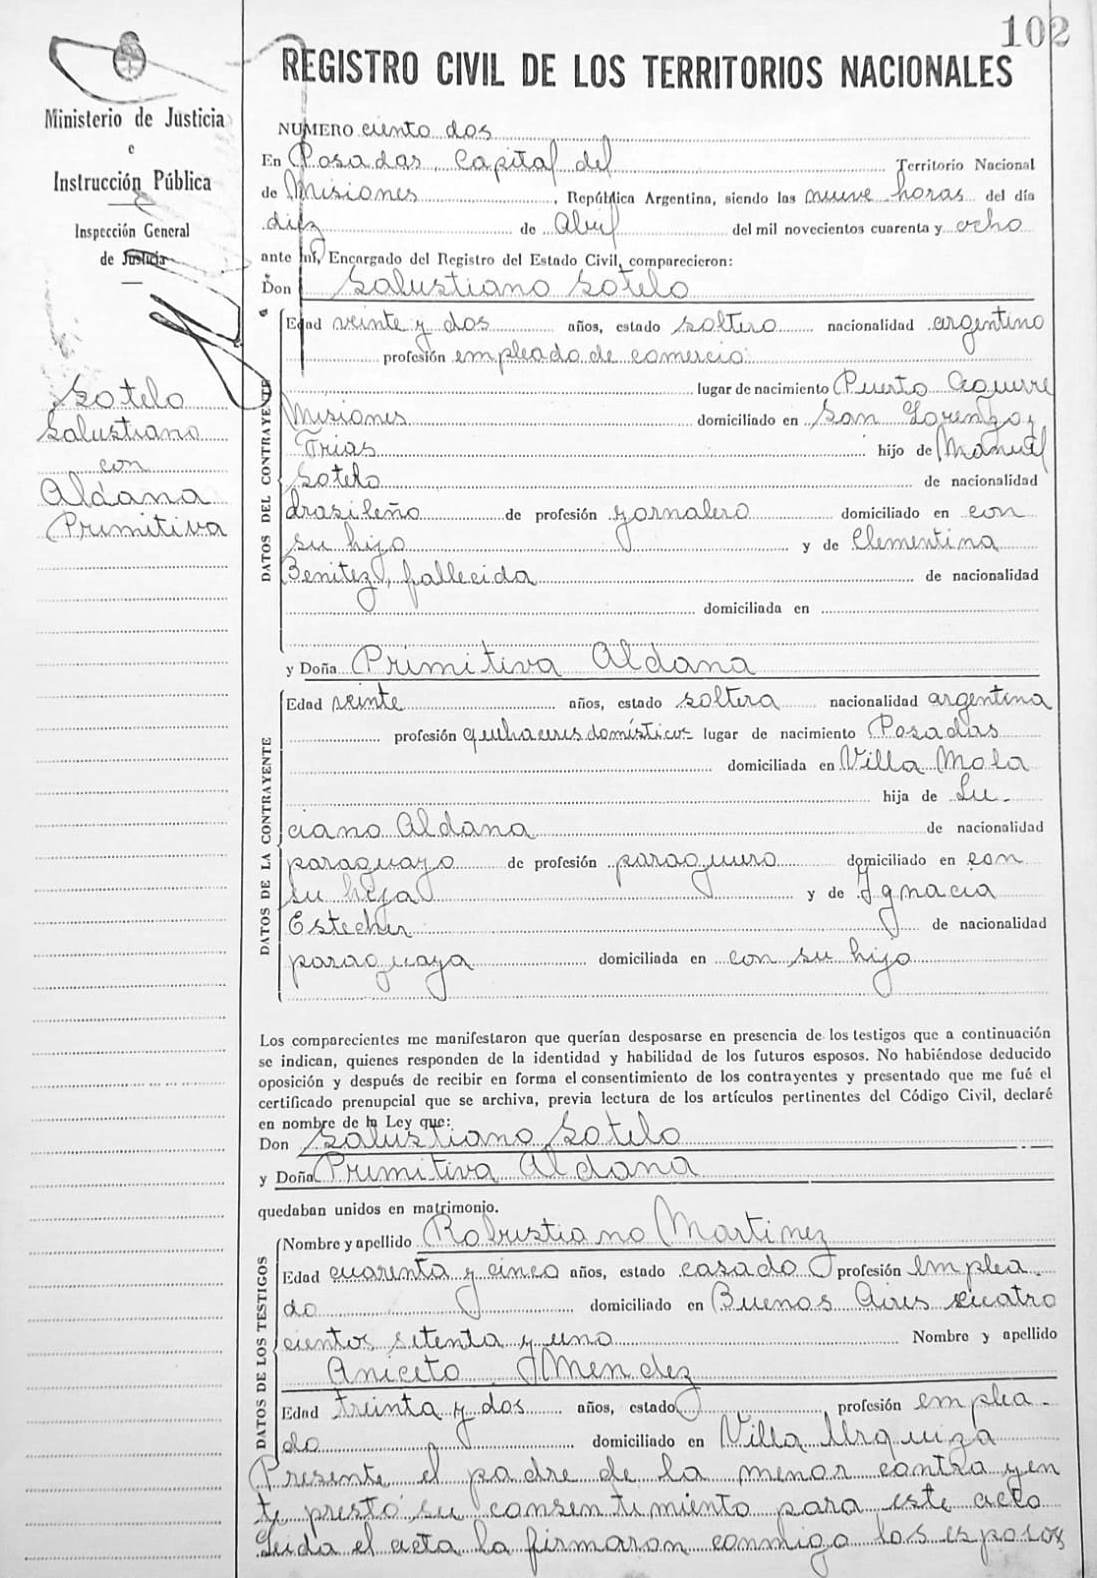 102
Ministerio de Justicia
e
Instrucción Pública
Inspección General
de Justicia
Sotelo
Salustiano
con
Aldana
Primitiva
REGISTRO CIVIL DE LOS TERRITORIOS NACIONALES
NUMERO ciento dos
En Posadas, Capital del Territorio Nacional
de Misiones, República Argentina, siendo las nueve horas del día
diez de Abril del mil novecientos cuarenta y ocho
ante mí, Encargado del Registro del Estado Civil, comparecieron:
Don Salustiano Sotelo
DATOS DEL CONTRAYENTE
Edad veinte y dos años, estado soltero nacionalidad argentino
profesión empleado de comercio
lugar de nacimiento Puerto Aguirre
Misiones domiciliado en San Lorenzo y
Frias hijo de Manuel
Sotelo de nacionalidad
brasileño de profesión jornalero domiciliado en con
su hijo y de Clementina
Benitez, fallecida de nacionalidad
domiciliada en
y Doña Primitiva Aldana
DATOS DE LA CONTRAYENTE
Edad veinte años, estado soltera nacionalidad argentina
profesión quehaceres domésticos lugar de nacimiento Posadas
domiciliada en Villa Mola
hija de Lu-
ciano Aldana de nacionalidad
paraguayo de profesión paraguero domiciliado en con
su hija y de Ygnacia
Estecher de nacionalidad
paraguaya domiciliada en con su hijo
Los comparecientes me manifestaron que querían desposarse en presencia de los testigos que a continuación
se indican, quienes responden de la identidad y habilidad de los futuros esposos. No habiéndose deducido
oposición y después de recibir en forma el consentimiento de los contrayentes y presentado que me fué el
certificado prenupcial que se archiva, previa lectura de los artículos pertinentes del Código Civil, declaré
en nombre de la Ley que:
Don Salustiano Sotelo
y Doña Primitiva Aldana
quedaban unidos en matrimonio.
DATOS DE LOS TESTIGOS
Nombre y apellido Robustiano Martinez
Edad cuarenta y cinco años, estado casado profesión emplea-
do domiciliado en Buenos Aires cuatro
cientos setenta y uno Nombre y apellido
Aniceto Mendez
Edad treinta y dos años, estado profesión emplea-
do domiciliado en Villa Urquiza
Presente el padre de la menor contrayen
te prestó su consentimiento para este acto
Leida el acta la firmaron conmigo los esposos